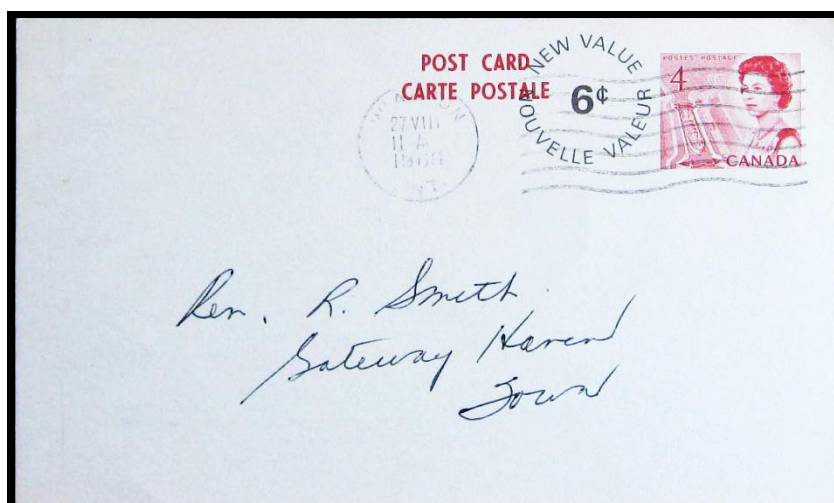 POST CARD
CARTE POSTALE
NEW VALUE
6¢
NOUVELLE VALEUR
POSTES POSTAGE
4
CANADA
27 VIII
11 A
Rev. R. Smith
Gateway Haven
Town